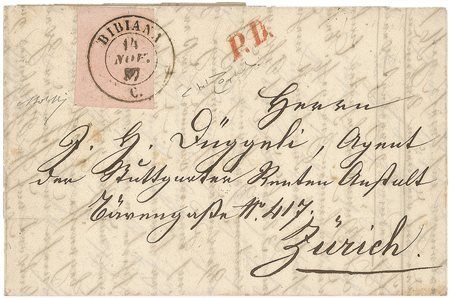 BIBIANA
14
NOV.
57
C.
P.D.
Herrn
J. H. Düggeli, Agent
der Stuttgarter Renten Anstalt
Bärengaße No. 417.
Zürich.